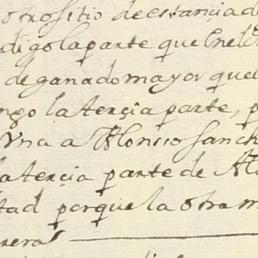 otro sitio de estancia de
digo la parte que en el
de ganado mayor que
tengo la terçia parte, p
Vna a Alonso Sanch
la terçia parte de Al
tad porque la otra m
nera